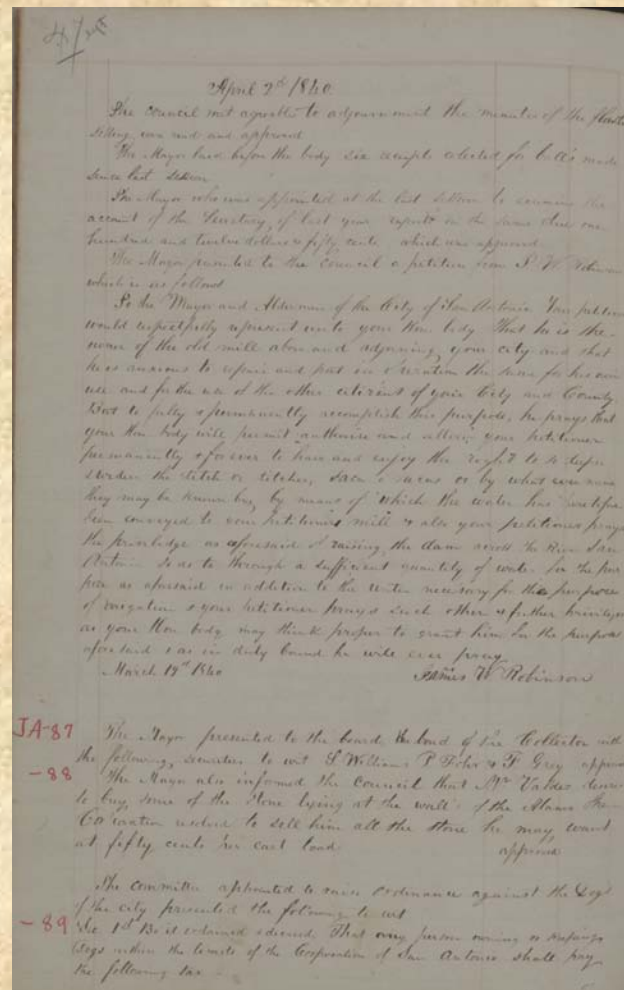 47
April 2d 1840
The council met agreable to adjournment the minutes of the
setting was read and approved
The Mayor laid before the body six receipts for made
since last session
The Mayor who was appointed at the last session to examine the
account of the Secretary, of last year reports in the same due one
hundred and twelve dollars & fifty cents which was approved
The Mayor presented to the council a petition from J W Robinson
which is as follows
To the Mayor and Alderman of the City of San Antonio Your petitioner
would respectfully represent unto your Hon body That he is the
owner of the old mill above and adjoining your city and that
he is anxious to repair and put in operation the same for his own
use and for the use of the other citizens of your City and County.
But to fully & permanently accomplish this purpose, he prays that
your Hon body will permit authorise and allow your petitioner
permanently & forever to have and enjoy the right to deepen
& widen the ditch or ditches, or by what ever name
they may be known by, by means of which the water has heretofore
been conveyed to your petitioners mill & also your petitioner prays
the priviledge as aforesaid of raising the dam across the River San
Antonio so as to through a sufficient quantity of water for the pur
pose as aforesaid in addition to the water necessary for the purpose
of irrigation & your petitioner prays such other & further priviliges
as your Hon body may think proper to grant him for the purpose
aforesaid & as in duty bound he will ever pray
March 19th 1840 James W Robinson
JA-87
The Mayor presented to the board the bond of the Collector with
the following securities to wit S William P & F Grey approved
-88
The Mayor also informed the council that Mr Valdes
to buy some of the stone lying at the wall of the Alamo the
Corporation resolved to sell him all the stone he may want
at fifty cents per cart load approved
The committee appointed to raise ordinance against the Dogs
of the city presented the following to wit
-89
Sec. 1st Be it ordained & decreed That every person owning or keeping
Dogs within the limits of the Corporation of San Antonio shall pay
the following tax